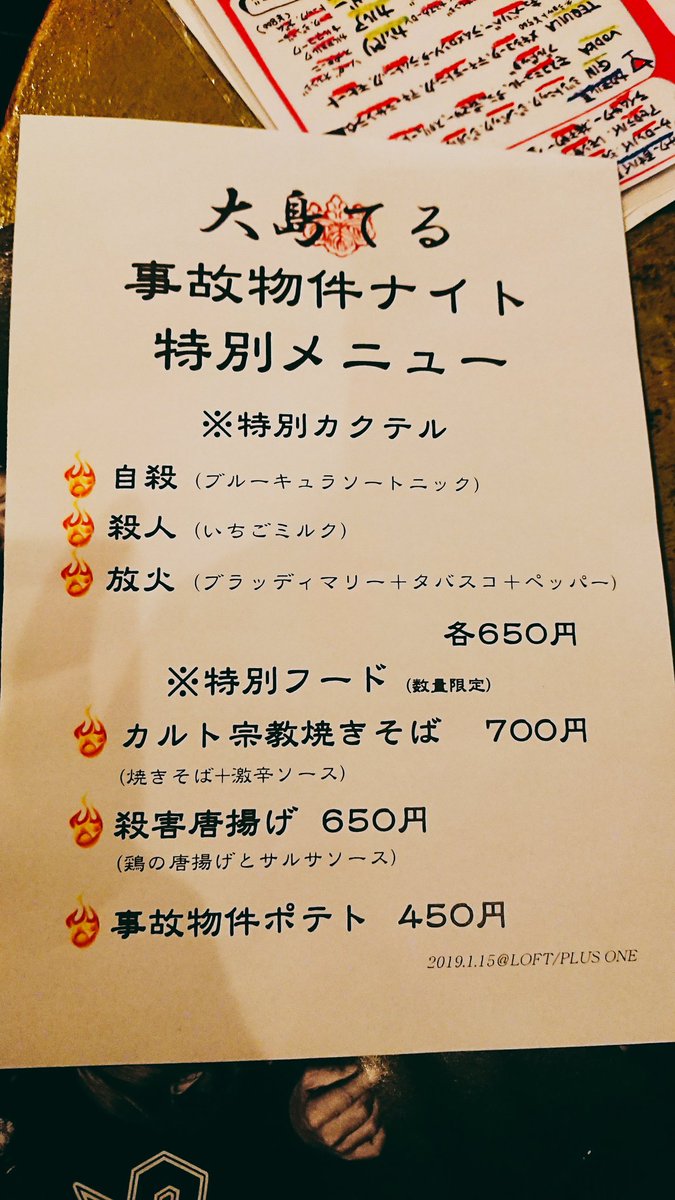 大島てる
事故物件ナイト
特別メニュー
※特別カクテル
自殺 (ブルーキュラソートニック)
殺人 (いちごミルク)
放火 (ブラッディマリー＋タバスコ＋ペッパー)
各650円
※特別フード (数量限定)
カルト宗教焼きそば 700円
(焼きそば+激辛ソース)
殺害唐揚げ 650円
(鶏の唐揚げとサルサソース)
事故物件ポテト 450円
2019.1.15@LOFT/PLUS ONE
TEQUILA
VODKA
GIN